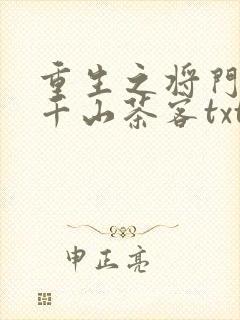 重生之将门
千山茶客txt
申正亮